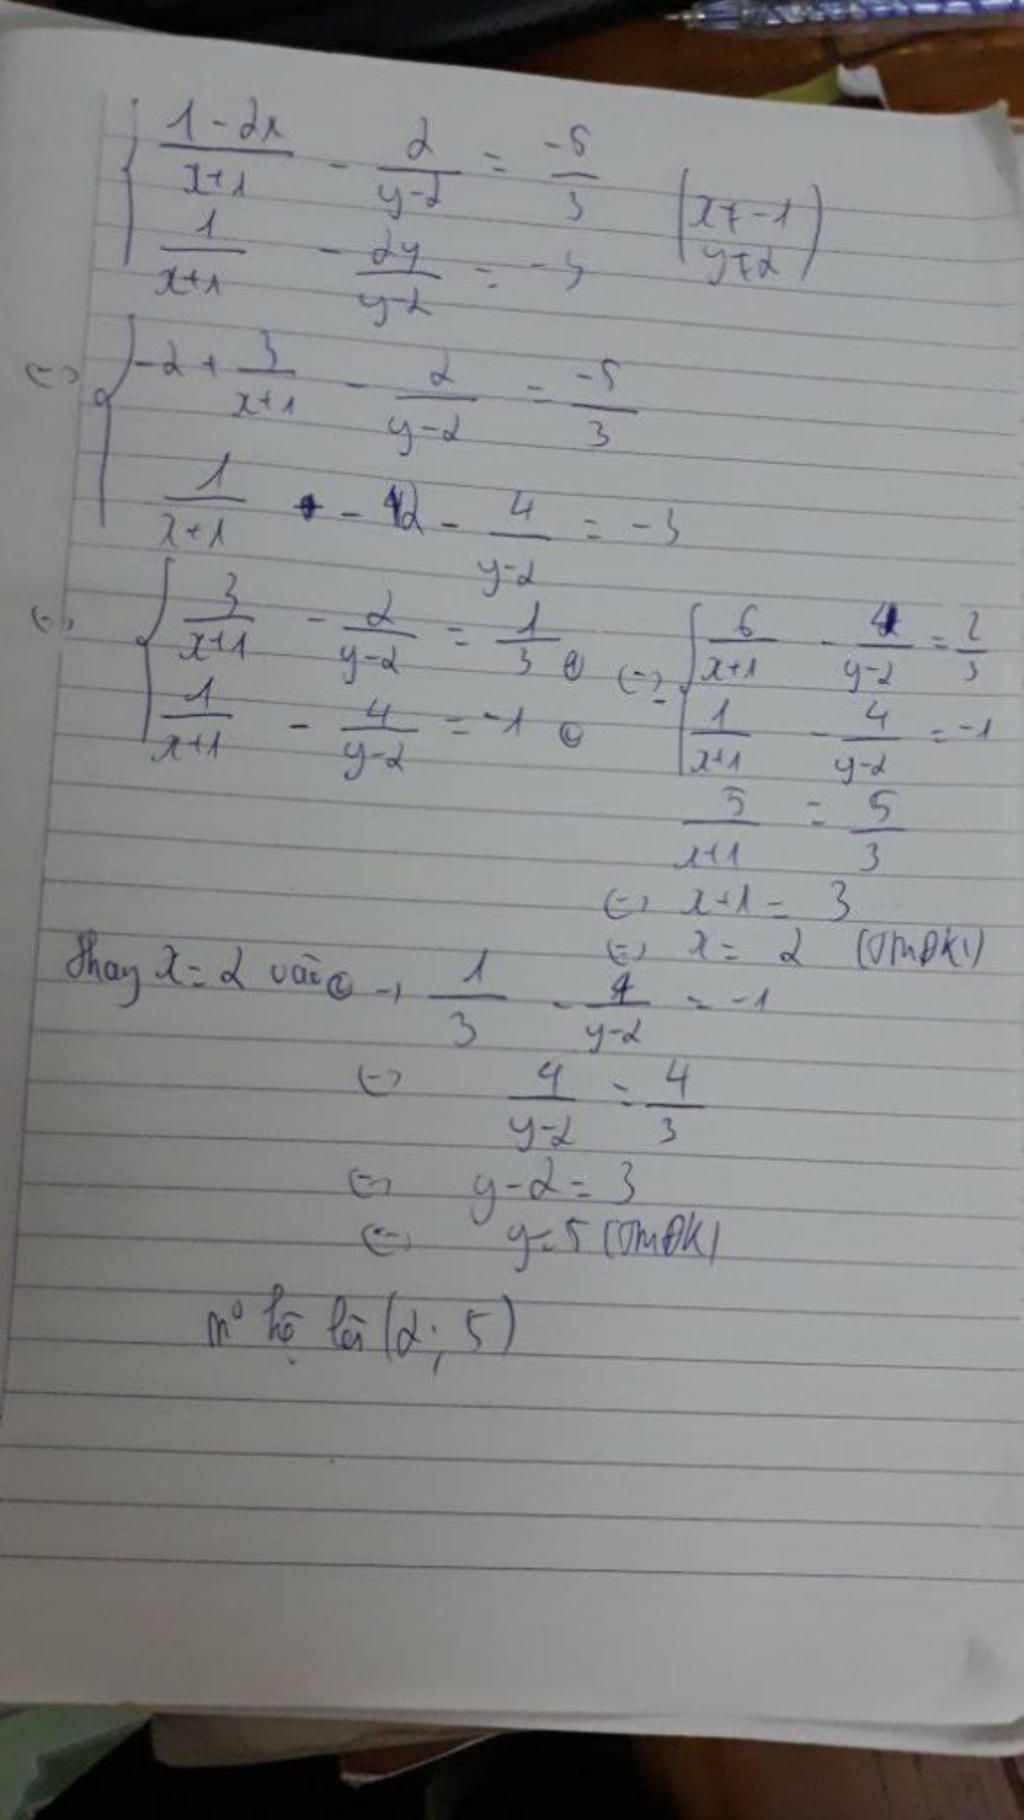 { (1-2x)/(x+1) - 2/(y-2) = -5/3 (x ≠ -1
1/(x+1) - 2y/(y-2) = -3 y ≠ 2)
<=> { -2 + 3/(x+1) - 2/(y-2) = -5/3
1/(x+1) - 2 - 4/(y-2) = -3
<=> { 3/(x+1) - 2/(y-2) = 1/3 ① <=> { 6/(x+1) - 4/(y-2) = 2/3
1/(x+1) - 4/(y-2) = -1 ② 1/(x+1) - 4/(y-2) = -1
5/(x+1) = 5/3
<=> x+1 = 3
<=> x = 2 (TMĐK)
Thay x = 2 vào ② → 1/3 - 4/(y-2) = -1
<=> 4/(y-2) = 4/3
<=> y-2 = 3
<=> y = 5 (TMĐK)
n° hệ là (2; 5)